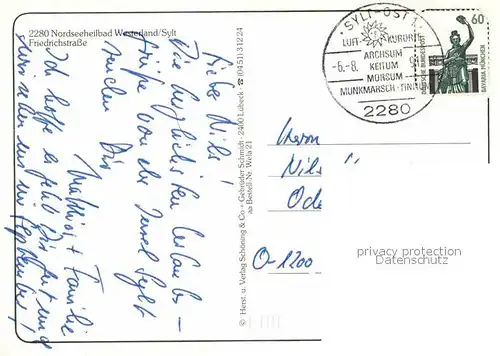 2280 Nordseeheilbad Westerland/Sylt
Friedrichstraße
Liebe Nils!
Die herzlichsten Urlaubs-
grüße von der Insel Sylt
senden Dir
Matthias + Familie
Ich hoffe es geht Dir gut und
wir sehen uns im September!
© Herst. u. Verlag Schöning & Co · Gebrüder Schmidt · 2400 Lübeck · ☎ (0451) 31224
aa Bestell-Nr. Wela 21
SYLT-OST 1
LUFT- KURORTE
ARCHSUM
KEITUM
MORSUM
MUNKMARSCH·TINNUM
-6.-8.
2280
60
DEUTSCHE BUNDESPOST
BAVARIA MÜNCHEN
Herrn
Nils
Ode
O-1200
privacy protection
Datenschutz